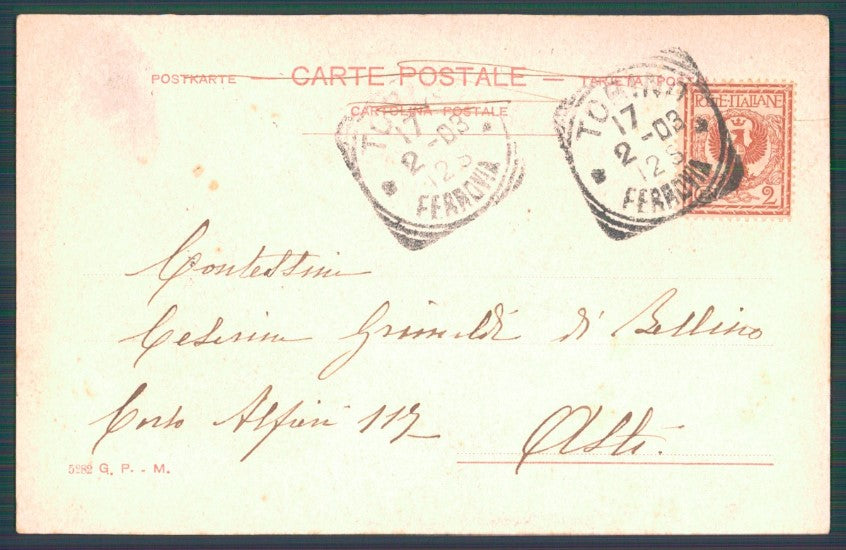 POSTKARTE — CARTE POSTALE — TARJETA POST
CARTOLINA POSTALE
TORINO
17
2-03
12 S
FERROVIA
TORINO
17
2-03
12 S
FERROVIA
POSTE·ITALIANE
2
Contessina
Ceserina Grimaldi di Bellino
Corso Alfieri 117
Asti.
5282 G. P. - M.